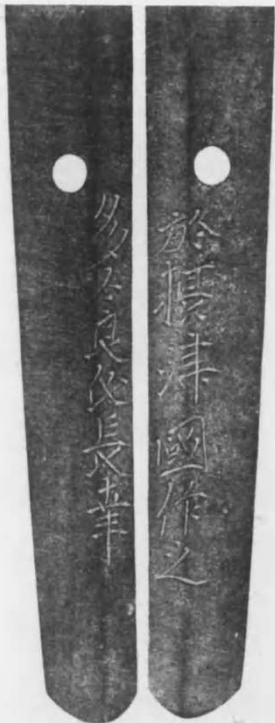 於摂津國作之
多々良氏長幸